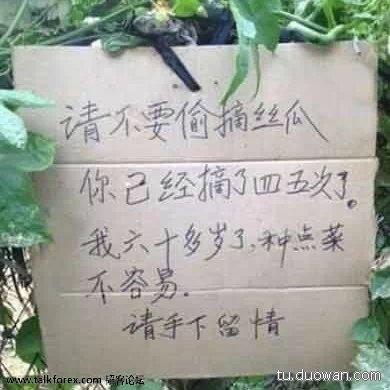 请不要偷摘丝瓜
你已经摘了四五次了。
我六十多岁了,种点菜
不容易.
请手下留情
www.talkforex.com 韬客论坛
tu.duowan.com